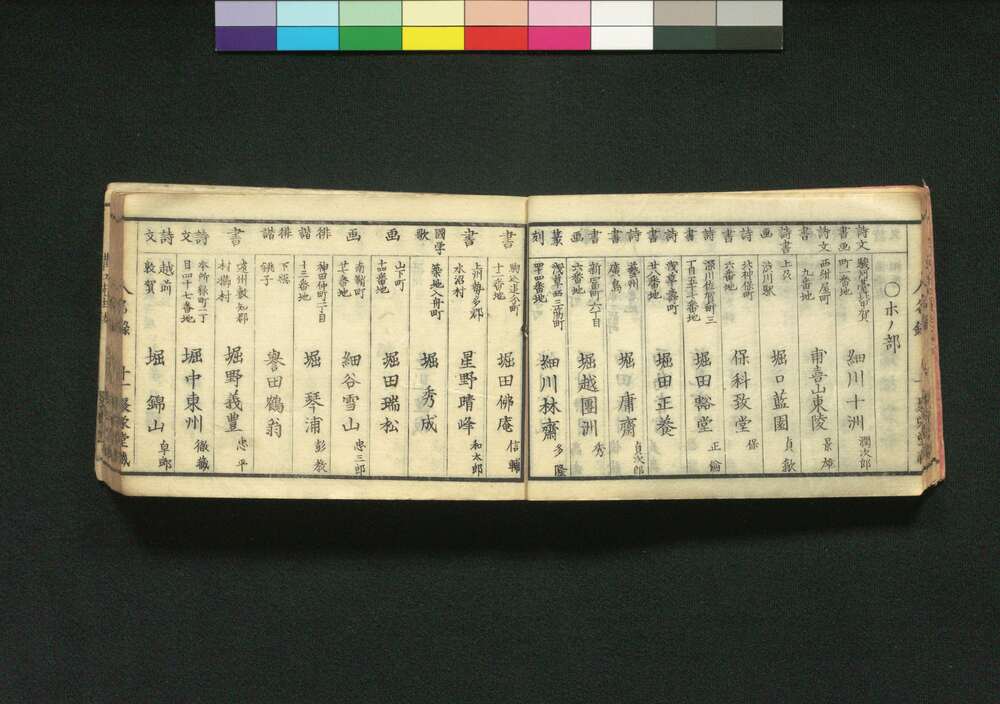 〇ホノ部
詩文 書画 駿河臺真甲賀町一番地 細川十洲 潤次郎
詩文 書 西紺屋町九番地 甫喜山東陵 景雄
詩書画 上呂 渋川駅 堀口藍園 貞歙
詩 北神保町六番地 保科致堂 保
書 深川佐賀町三丁目五十六番地 堀田谿堂 正倫
詩書 浅草壽町廿八番地 堀田正養
詩書 藝州廣島 堀田庸齋 貞次郎
書画 新冨町六丁目六番地 堀越團洲 秀
篆刻 浅草西三筋町四番地 細川林齋 多隆
書 駒込追分町十二番地 堀田佛庵 信輔
書 上州勢多郡水沼村 星野晴峰 和太郎
國学 歌 築地入舟町 堀秀成
画 山下町十四番地 堀田瑞松
画 南鞘町廿一番地 細谷雪山 忠三郎
俳諧 神田仲町二丁目十三番地 堀琴浦 彭教
俳諧 下総銚子 譽田鶴翁
書 遠州敷知郡村櫛村 堀野義豊 忠平
詩文 本所緑町二丁目四十七番地 堀中東州 徹蔵
詩文 越前敦賀 堀錦山 卓郎
人名録 十一 聚栄堂蔵